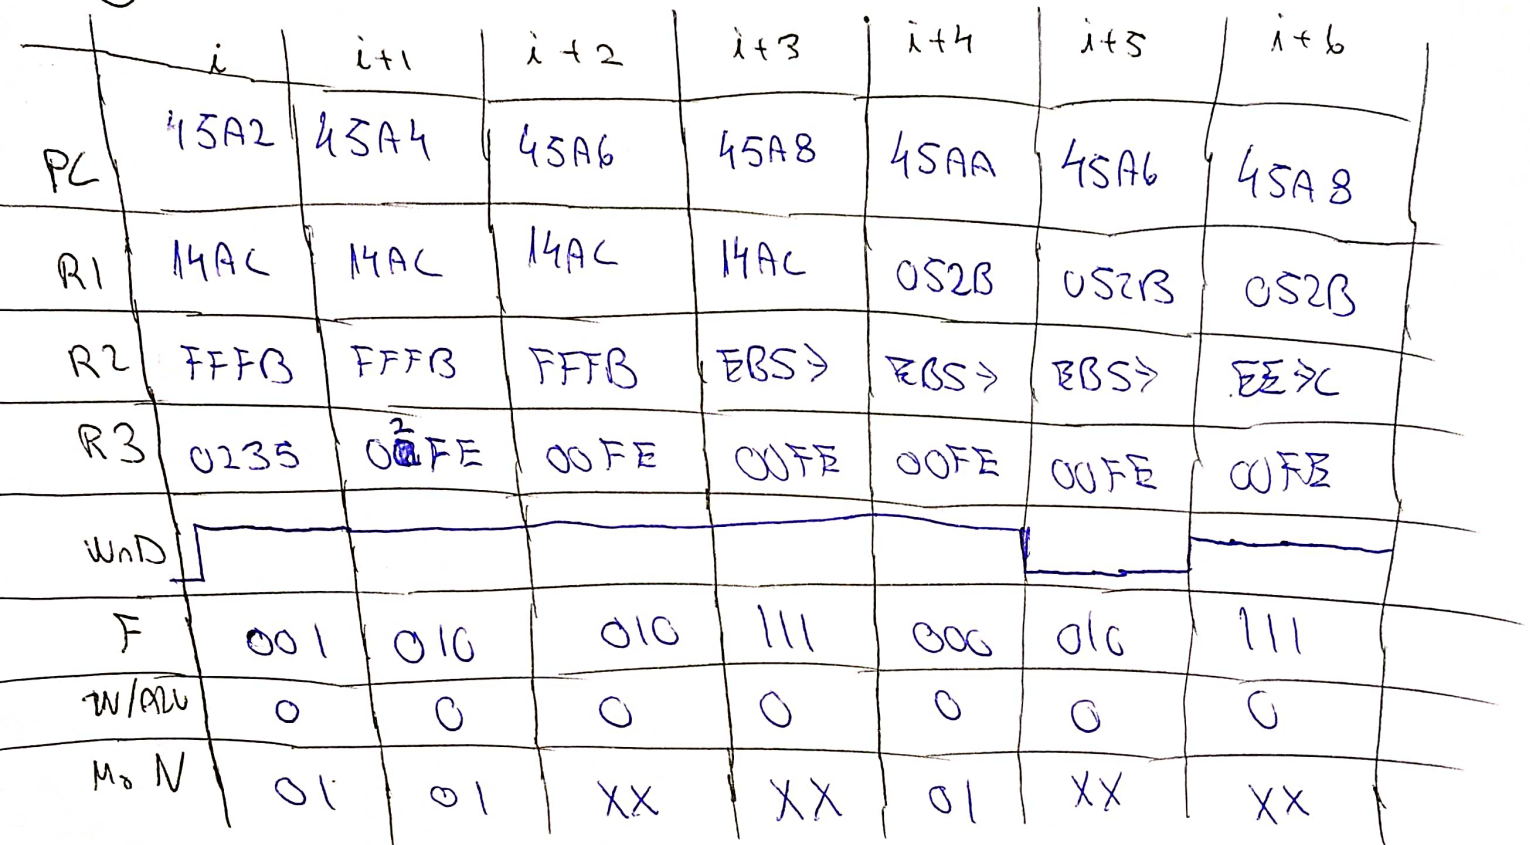 i i+1 i+2 i+3 i+4 i+5 i+6
PC 45A2 45A4 45A6 45A8 45AA 45A6 45A8
R1 14AC 14AC 14AC 14AC 052B 052B 052B
R2 FFFB FFFB FFFB EB57 EB57 EB57 EE7C
R3 0235 02FE 00FE 00FE 00FE 00FE 00FE
WrD
F 001 010 010 111 000 010 111
IN/ALU 0 0 0 0 0 0 0
01 01 XX XX 01 XX XX